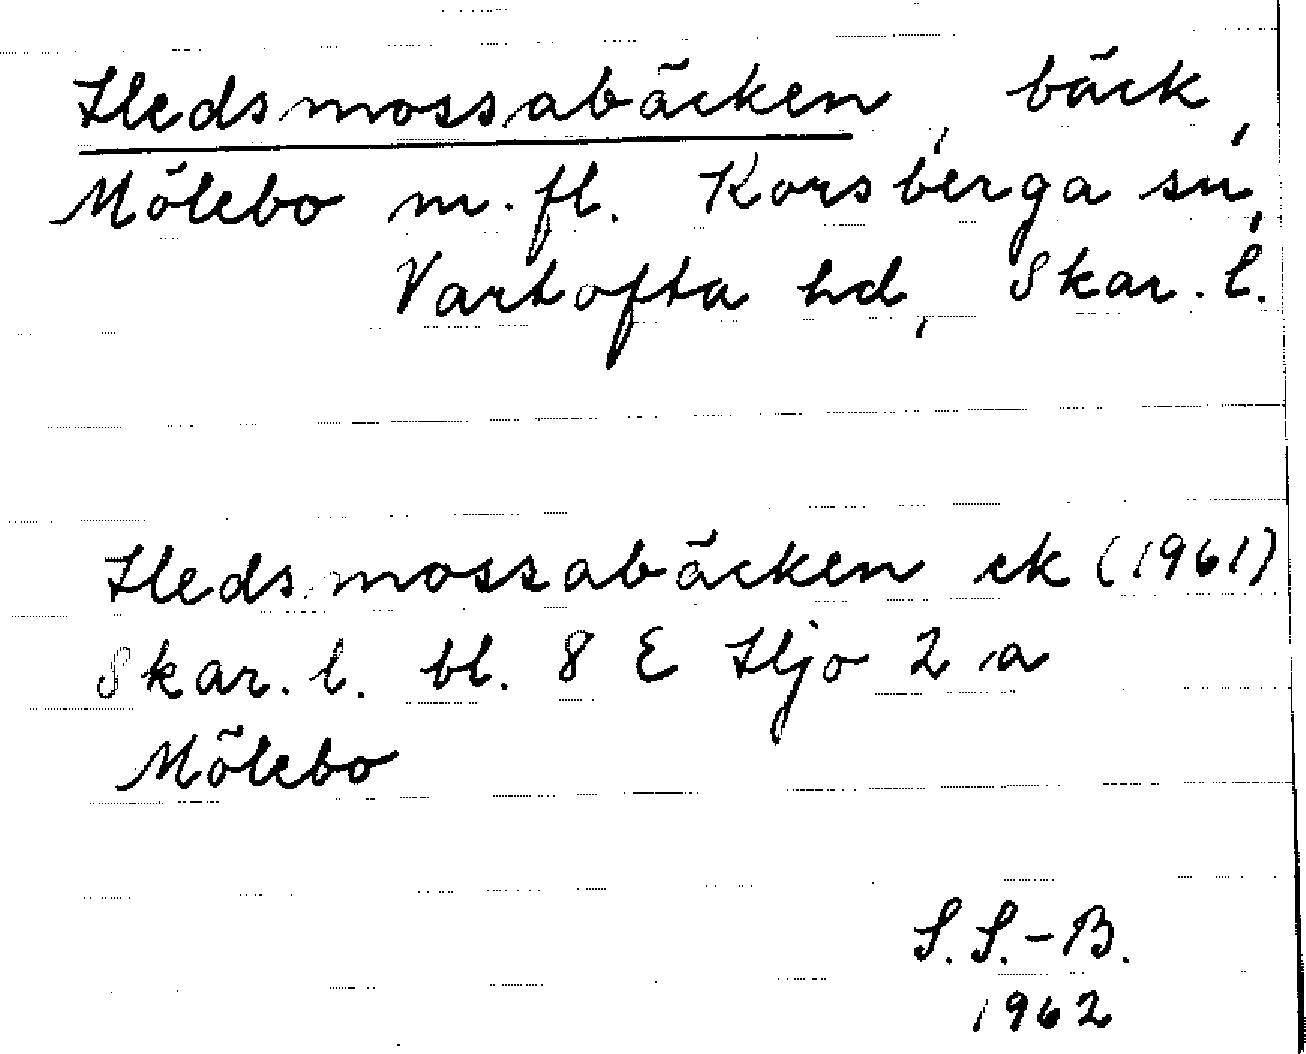 Hedsmossabäcken, bäck,
Mölebo m. fl. Korsberga sn,
Vartofta hd, Skar. l.
Hedsmossabäcken ek (1961)
Skar. l. bl. 8 E Hjo 2 a
Mölebo
S. S.-B.
1962